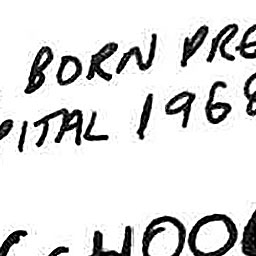 BORN PRE
PITAL 1968
SCHOO